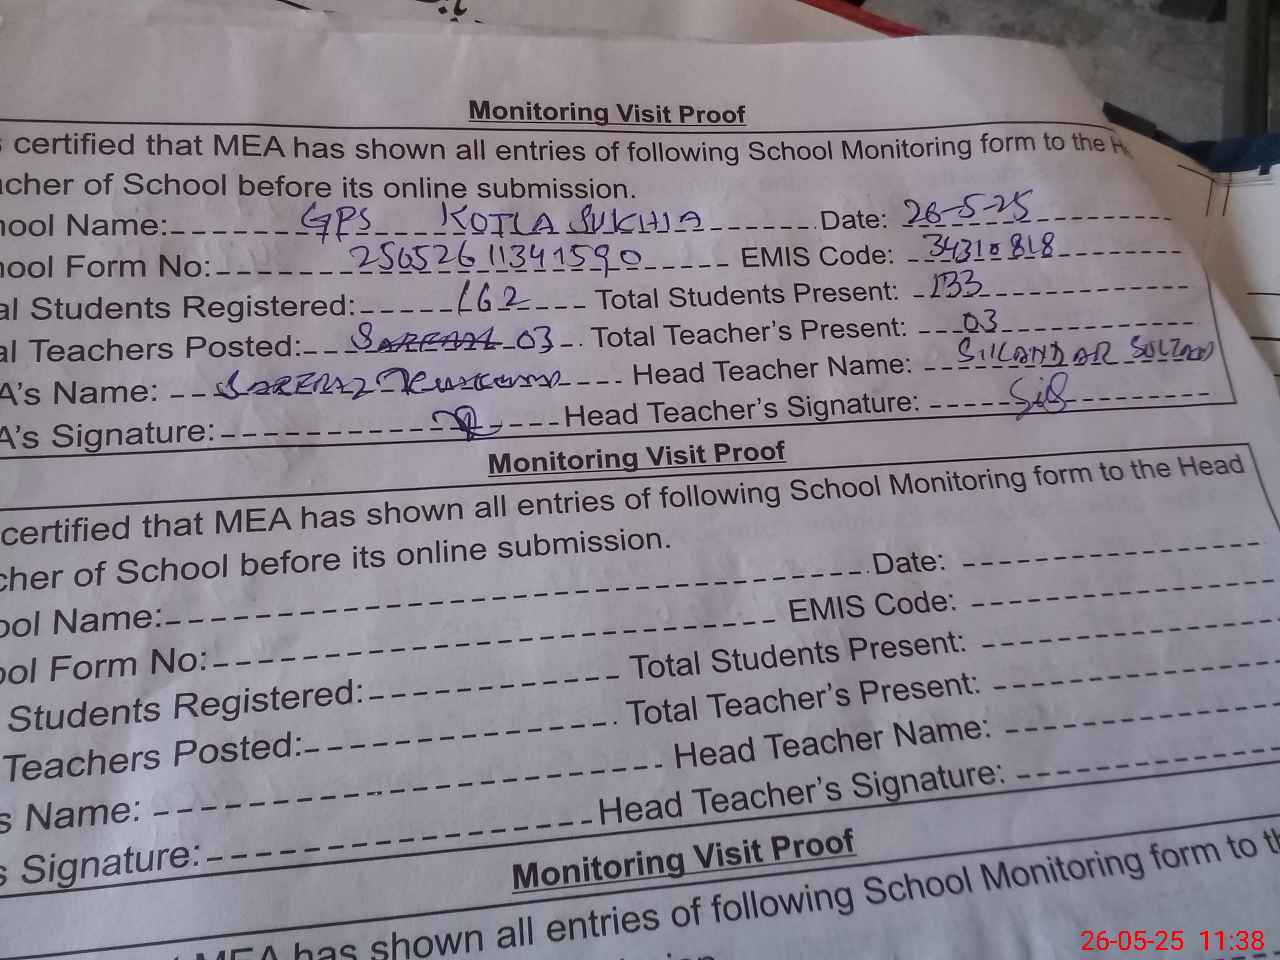 Monitoring Visit Proof
certified that MEA has shown all entries of following School Monitoring form to the
cher of School before its online submission.
ool Name: GPS KOTLA SUKHIA Date: 26-5-25
ool Form No: 25652611341590 EMIS Code: 34310818
al Students Registered: 162 Total Students Present: 133
al Teachers Posted: 03 Total Teacher's Present: 03
A's Name: Head Teacher Name: SIKANDAR
A's Signature: Head Teacher's Signature:
Monitoring Visit Proof
certified that MEA has shown all entries of following School Monitoring form to the Head
cher of School before its online submission.
ool Name: Date:
ool Form No: EMIS Code:
Students Registered: Total Students Present:
Teachers Posted: Total Teacher's Present:
s Name: Head Teacher Name:
s Signature: Head Teacher's Signature:
Monitoring Visit Proof
MEA has shown all entries of following School Monitoring form to
26-05-25 11:38